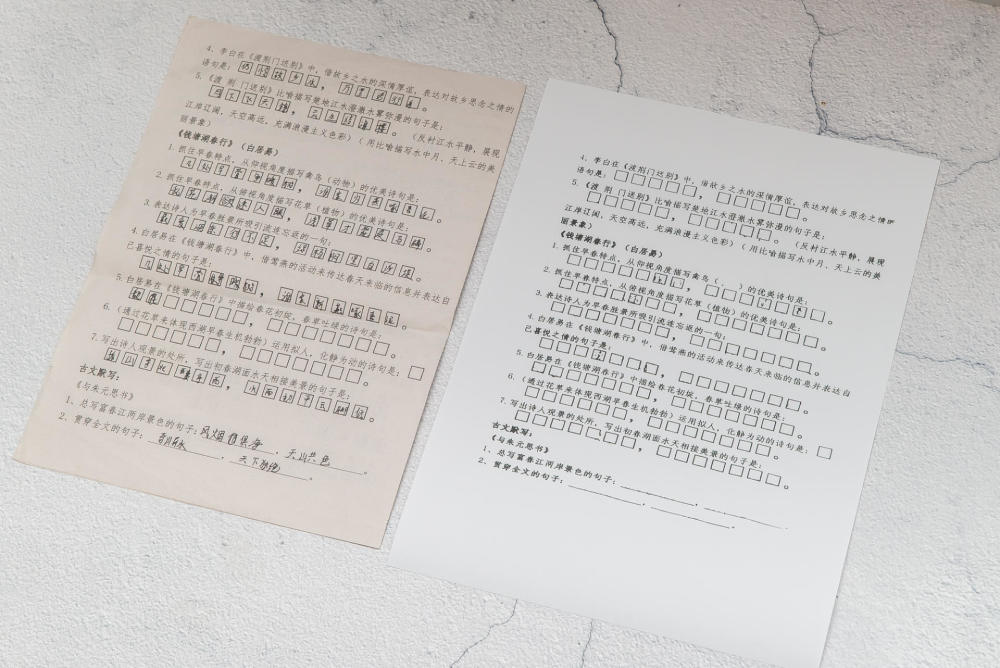 4、李白在《渡荆门送别》中，借故乡之水的深情厚谊，表达对故乡思念之情的
语句是：仍怜故乡水，万里送行舟。
5、《渡 荆 门送别》比喻描写楚地江水澄澈水雾弥漫的句子是：
月下飞天镜，云生结海楼。（反衬江水平静，展现
江岸辽阔，天空高远，充满浪漫主义色彩）（用比喻描写水中月、天上云的美
丽景象）
《钱塘湖春行》（白居易）
1. 抓住早春特点，从仰视角度描写禽鸟（动物）的优美诗句是：
几处早莺争暖树，谁家新燕啄春泥。
2. 抓住早春特点，从俯视角度描写花草（植物）的优美诗句是：
乱花渐欲迷人眼，浅草才能没马蹄。
3. 表达诗人为早春胜景所吸引流连忘返的一句：
最爱湖东行不足，绿杨阴里白沙堤。
4. 白居易在《钱塘湖春行》中，借莺燕的活动来传达春天来临的信息并表达自
己喜悦之情的句子是：
几处早莺争暖树，谁家新燕啄春泥。
5. 白居易在《钱塘湖春行》中描绘春花初绽，春草吐绿的诗句是：
6. （通过花草来体现西湖早春生机勃勃）运用拟人，化静为动的诗句是：
7. 写出诗人观景的处所，写出初春湖面水天相接美景的句子是：
孤山寺北贾亭西，水面初平云脚低。
古文默写：
《与朱元思书》
1、总写富春江两岸景色的句子：风烟俱净，天山共色。
2、贯穿全文的句子：奇山异水，天下独绝。
4、李白在《渡荆门送别》中，借故乡之水的深情厚谊，表达对故乡思念之情的
语句是：
5、《渡 荆 门送别》比喻描写楚地江水澄澈水雾弥漫的句子是：
（反衬江水平静，展现
江岸辽阔，天空高远，充满浪漫主义色彩）（用比喻描写水中月、天上云的美
丽景象）
《钱塘湖春行》（白居易）
1. 抓住早春特点，从仰视角度描写禽鸟（ ）的优美诗句是：
2. 抓住早春特点，从俯视角度描写花草（植物）的优美诗句是：
3. 表达诗人为早春胜景所吸引流连忘返的一句：
4. 白居易在《钱塘湖春行》中，借莺燕的活动来传达春天来临的信息并表达自
己喜悦之情的句子是：
5. 白居易在《钱塘湖春行》中描绘春花初绽，春草吐绿的诗句是：
6. （通过花草来体现西湖早春生机勃勃）运用拟人，化静为动的诗句是：
7. 写出诗人观景的处所，写出初春湖面水天相接美景的句子是：
古文默写：
《与朱元思书》
1、总写富春江两岸景色的句子：
2、贯穿全文的句子：